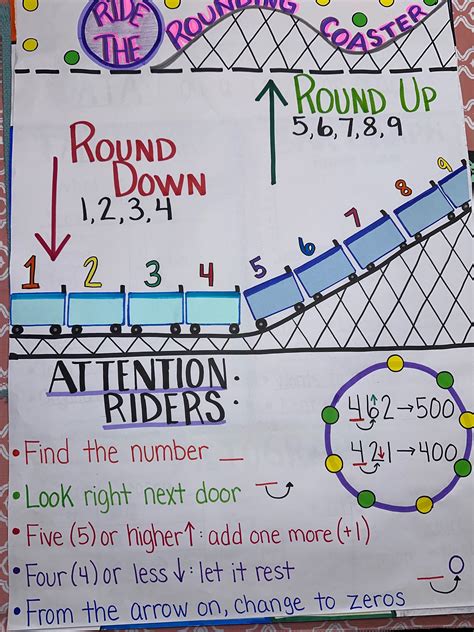 RIDE
THE
ROUNDING
COASTER
ROUND UP
5,6,7,8,9
ROUND
DOWN
1,2,3,4
1 2 3 4 5 6 7 8 9
ATTENTION
RIDERS:
462→500
421→400
• Find the number _
• Look right next door _
• Five (5) or higher↑: add one more (+1)
• Four (4) or less ↓: let it rest
• From the arrow on, change to zeros _ 0